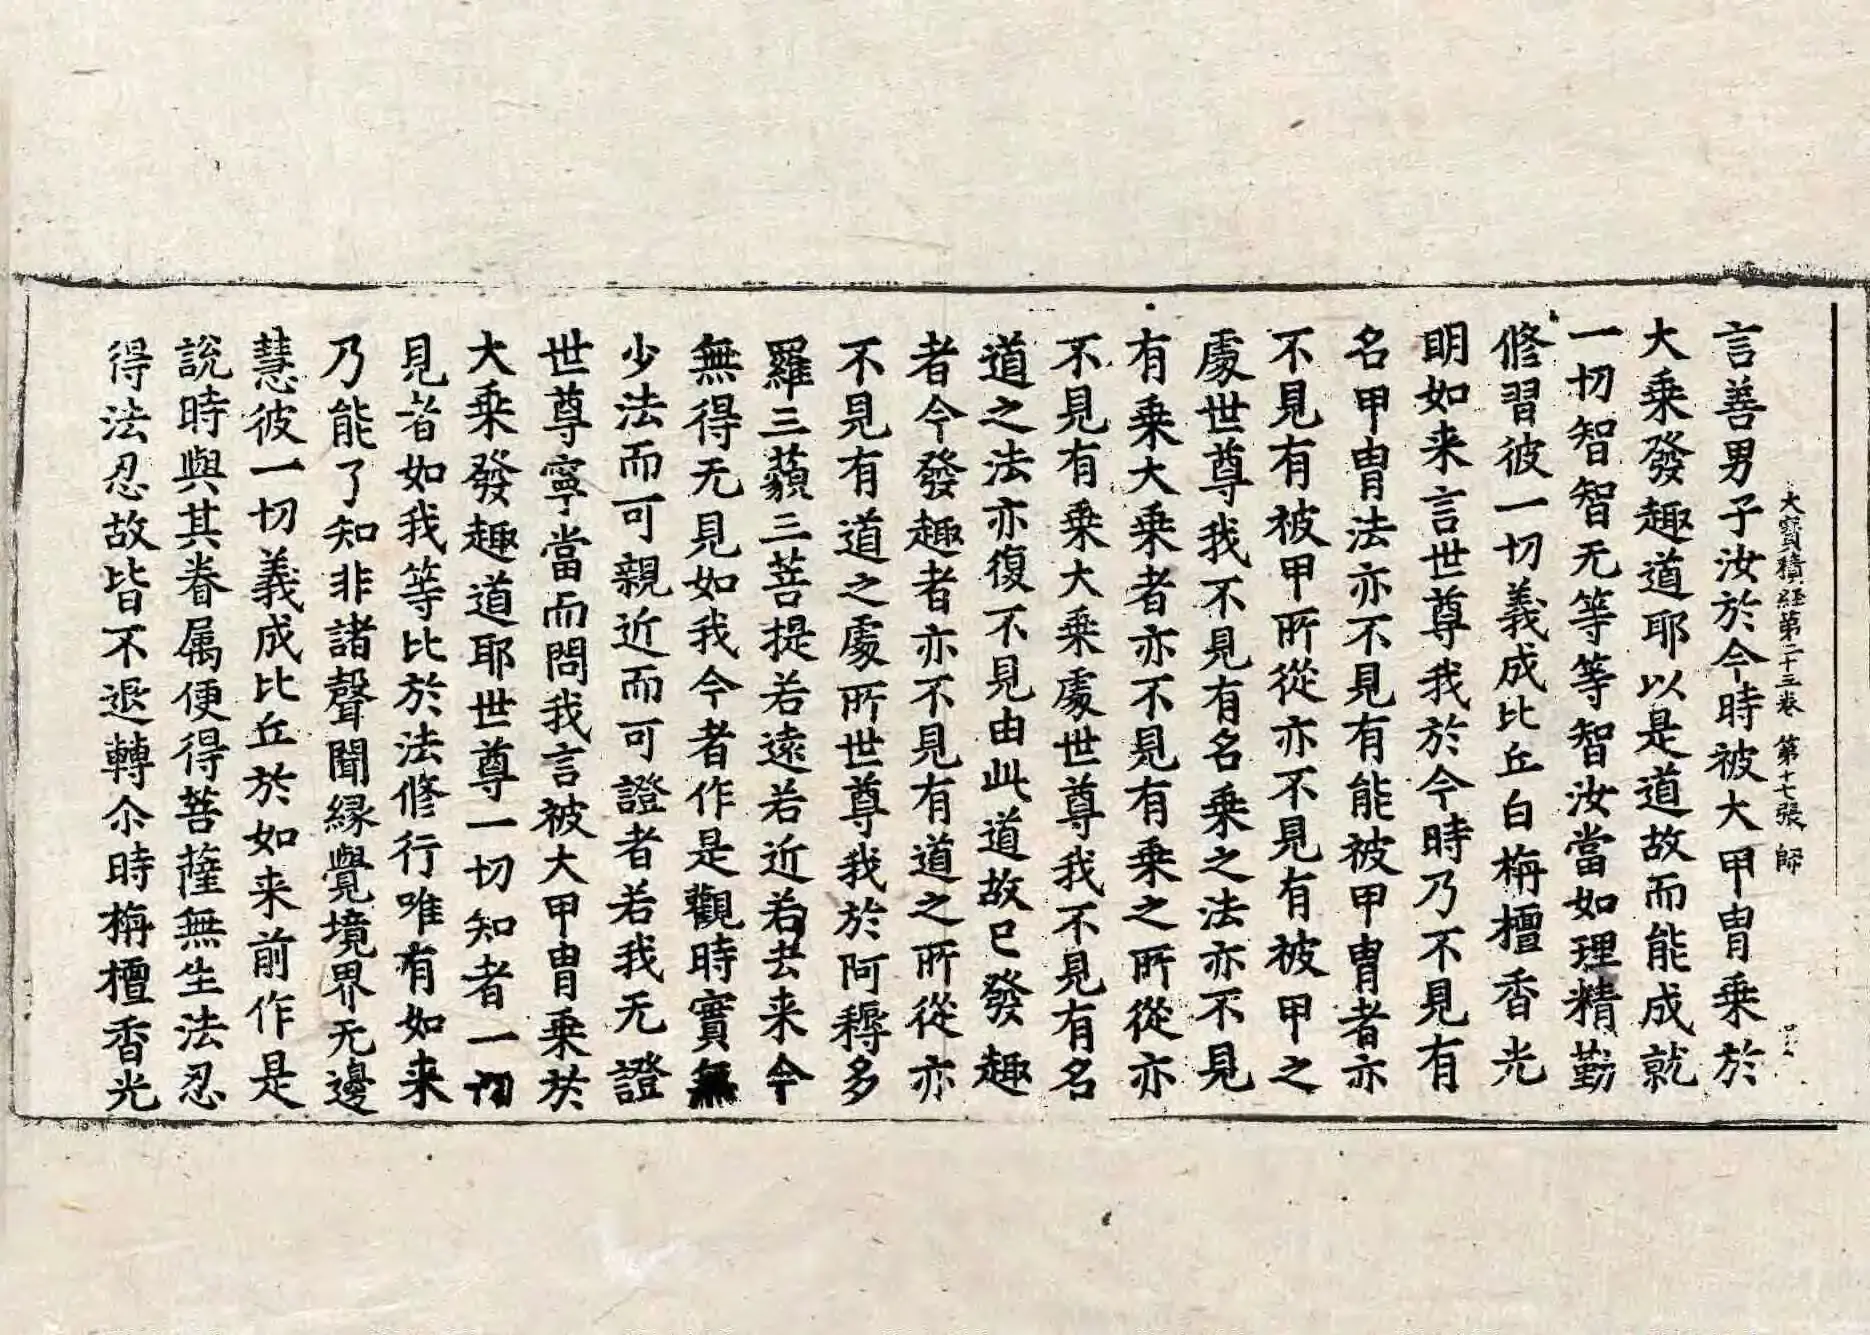 大寶積經第二十三卷 第十七張 師
言善男子汝於今時被大甲冑乗於
大乗發趣道耶以是道故而能成就
一切智智无等等智汝當如理精勤
修習彼一切義成比丘白栴檀香光
明如来言世尊我於今時乃不見有
名甲冑法亦不見有能被甲冑者亦
不見有被甲所從亦不見有被甲之
處世尊我不見有名乗之法亦不見
有乗大乗者亦不見有乗之所從亦
不見有乗大乗處世尊我不見有名
道之法亦復不見由此道故已發趣
者今發趣者亦不見有道之所從亦
不見有道之處所世尊我於阿耨多
羅三藐三菩提若遠若近若去来今
無得无見如我今者作是觀時實無
少法而可親近而可證者若我无證
世尊寧當而問我言被大甲冑乗於
大乗發趣道耶世尊一切知者一切
見者如我等比於法修行唯有如来
乃能了知非諸聲聞緣覺境界无邊
慧彼一切義成比丘於如来前作是
說時與其眷属便得菩薩無生法忍
得法忍故皆不退轉尒時栴檀香光